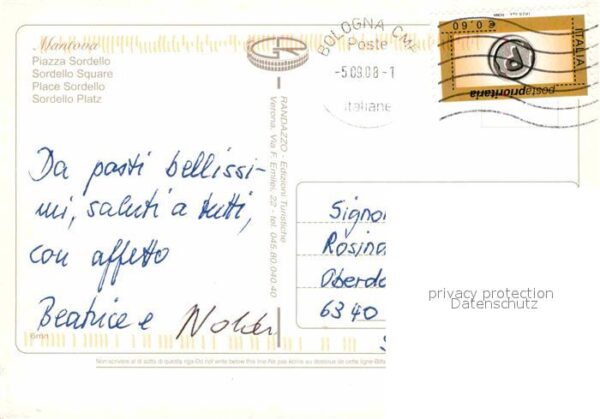 Mantova
Piazza Sordello
Sordello Square
Place Sordello
Sordello Platz
BOLOGNA CMP
Poste
-5.09.08-1
italiane
€ 0,60
ITALIA
postaprioritaria
RANDAZZO - Edizioni Turistiche
Verona, Via F. Emilei, 22 - tel. 045.80.040.40
Da posti bellissi-
mi, saluti a tutti,
con affetto
Beatrice e
Signor
Rosina
Oberdo
6340
privacy protection
Datenschutz
Non scrivere al di sotto di questa riga-Do not write below this line-Ne pas écrire au dessous de cette ligne-Bitte